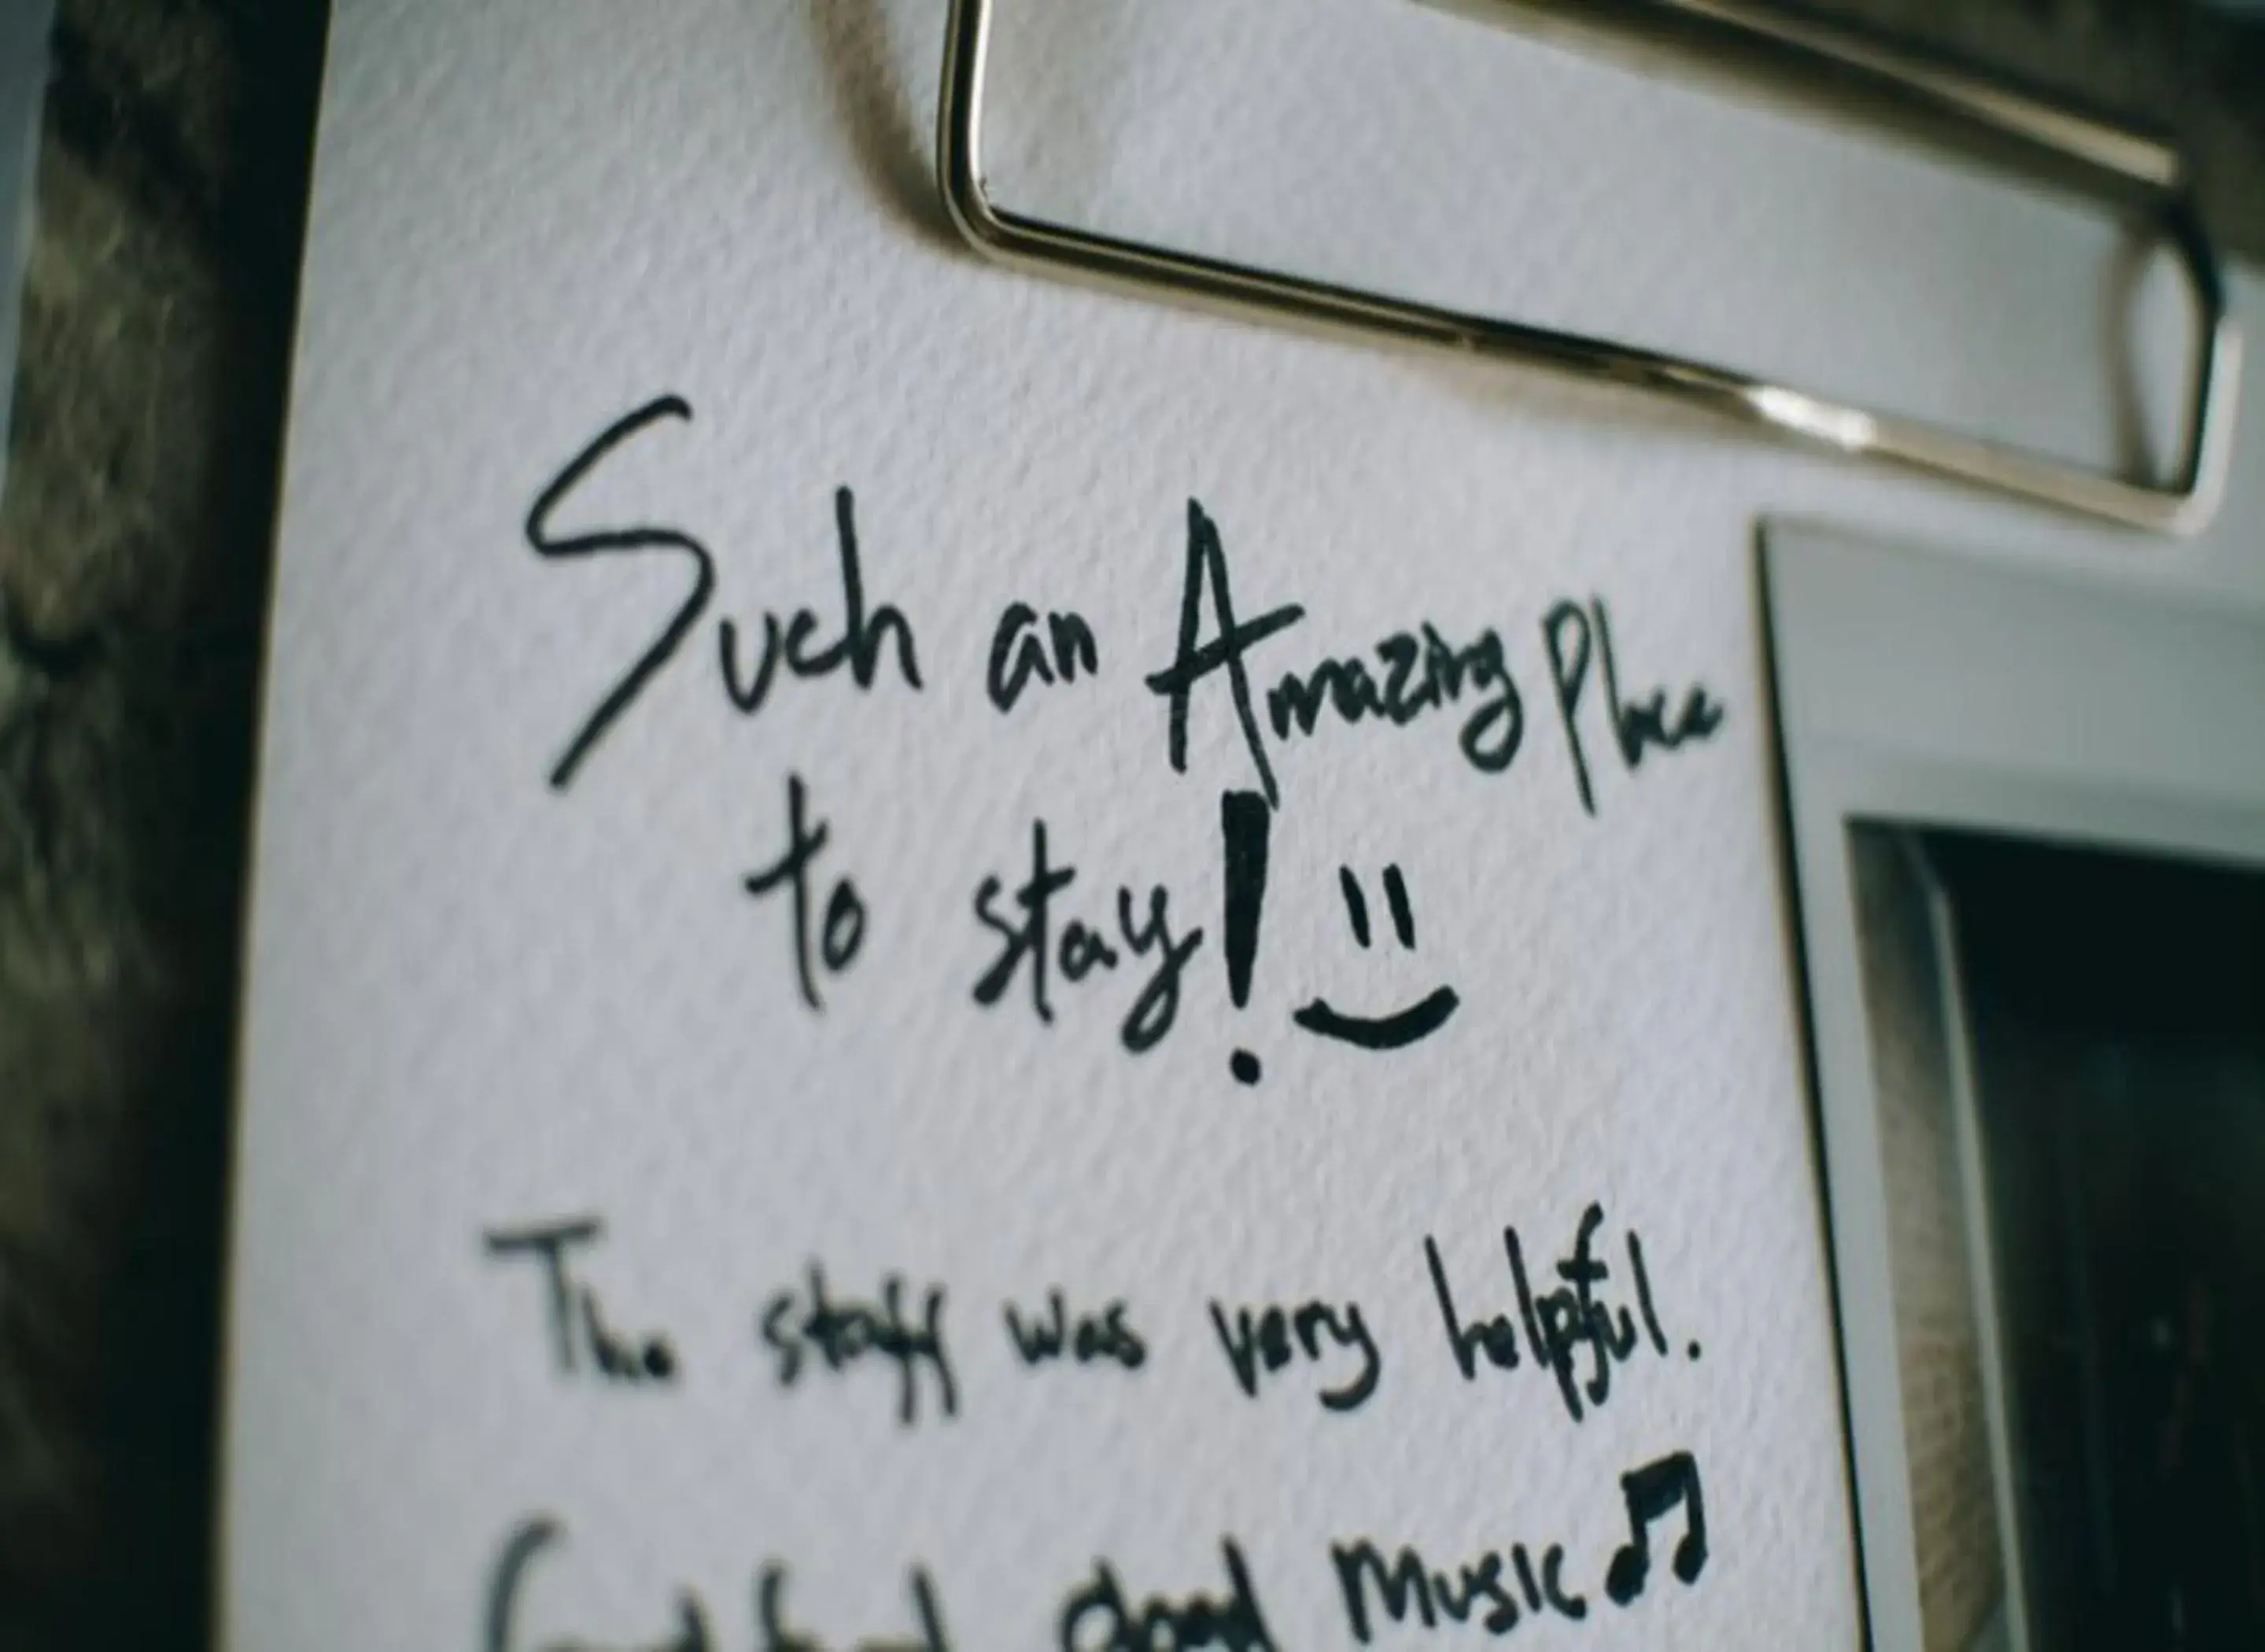 Such an Amazing Place
to stay!
The staff was very helpful.
Good food, good Music